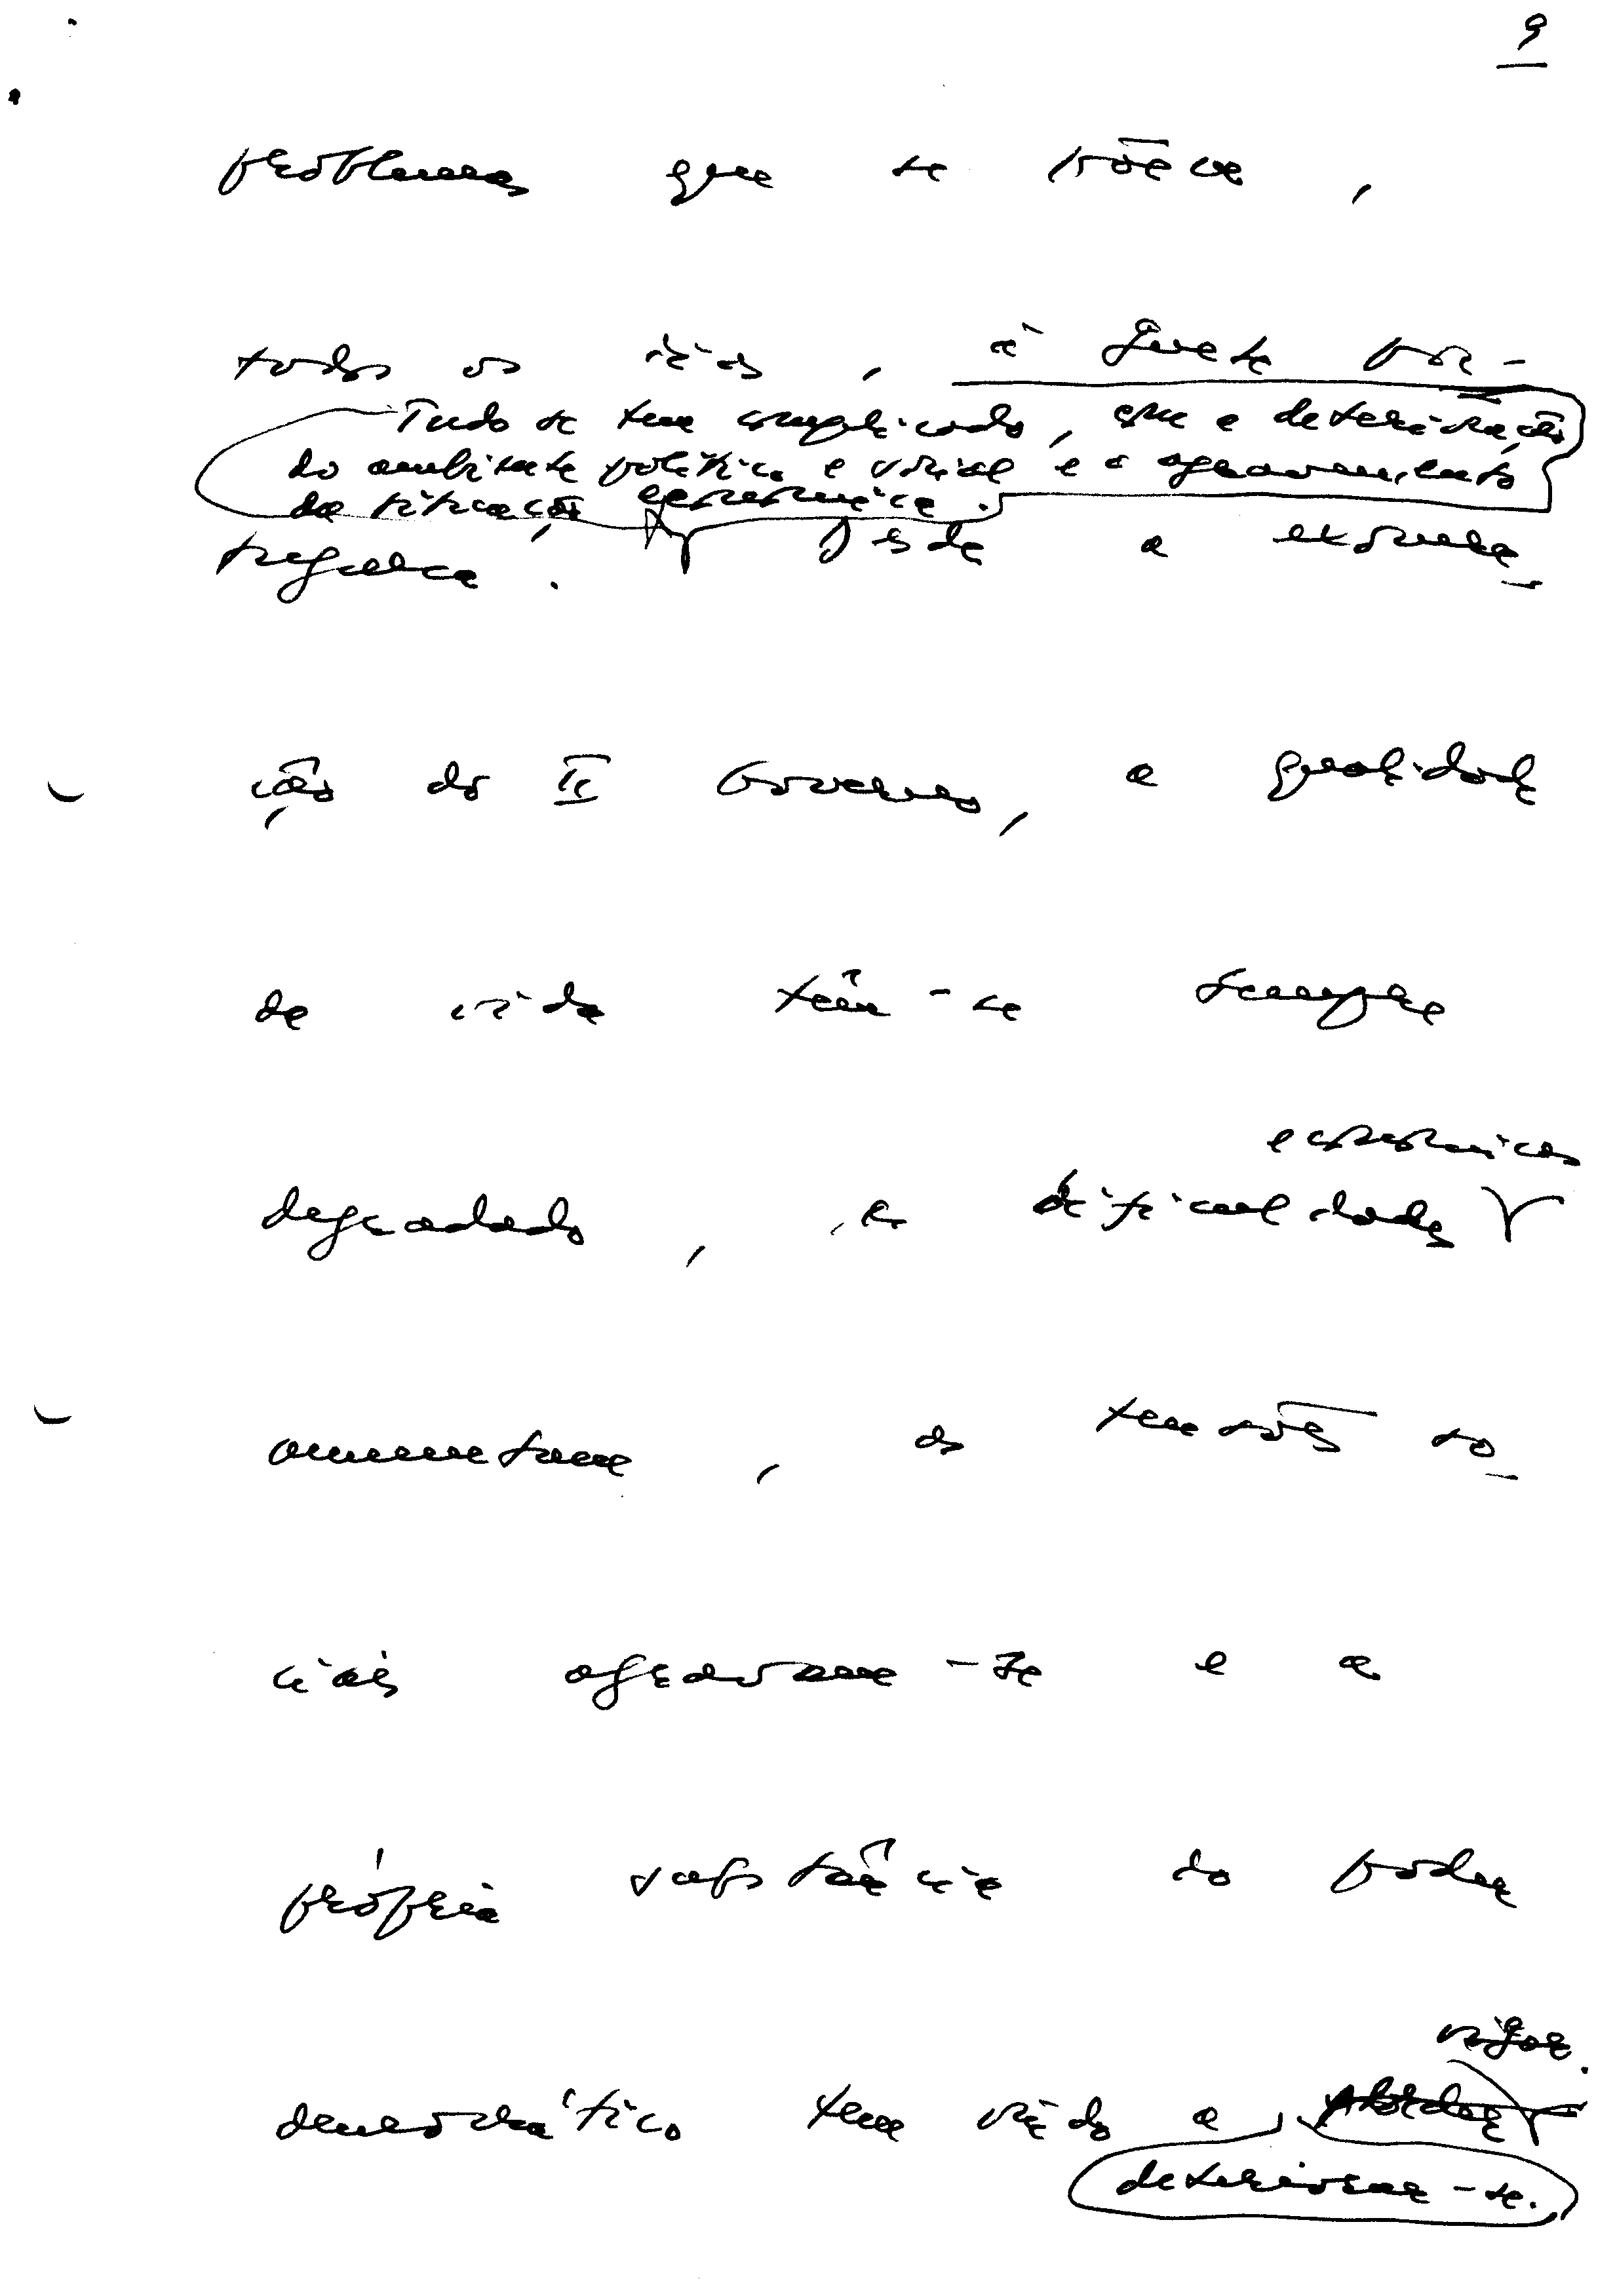 9
problemas que se põem,
todos os dias, à gente por-
Tudo se tem complicado, com a deterioração
do ambiente político e social e o agravamento
da situação económica.
tuguesa. Desde a exonera-
ção do II Governo, a qualidade
de vida tem-se sempre
degradado, as dificuldades
económicas
aumentam, as tensões so-
ciais agravam-se e a
própria substância do poder
vigor.
democrático tem vindo a perder
deteriorar-se.